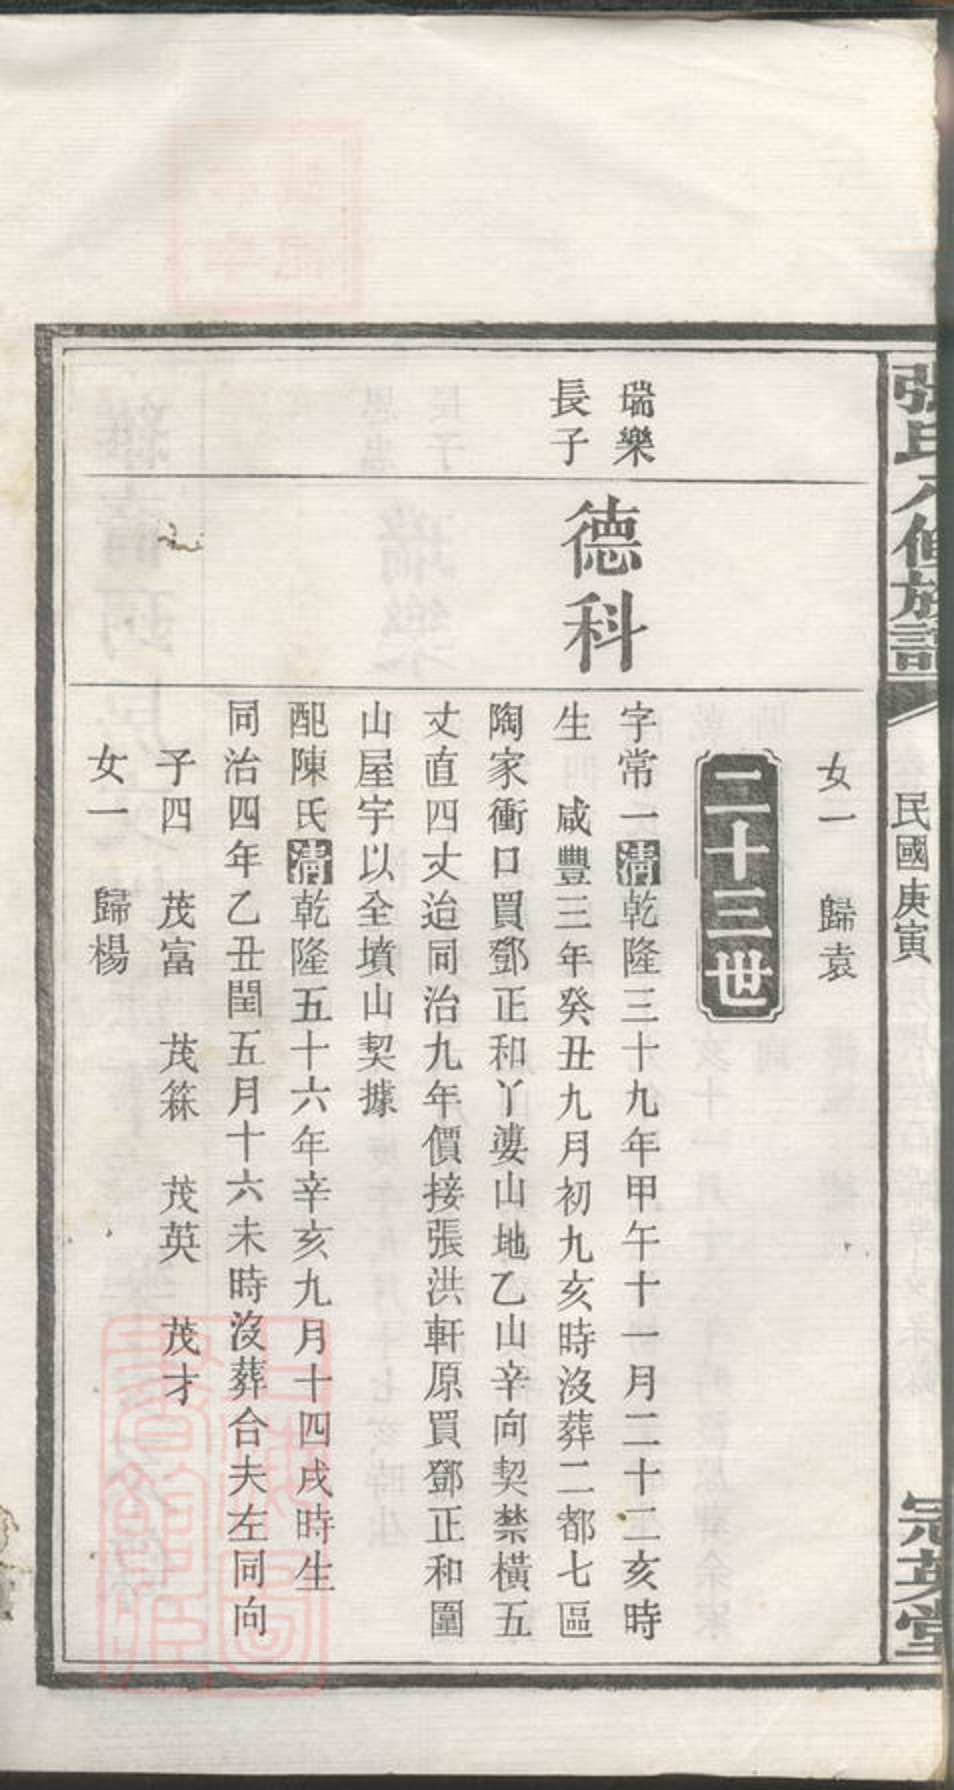 張氏八修族譜
民國庚寅
冠英堂
女一 歸袁
二十三世
瑞樂
長子
德科
字常一清乾隆三十九年甲午十一月二十二亥時
生 咸豐三年癸丑九月初九亥時沒葬二都七區
陶家衝口買鄧正和丫婆山地乙山辛向契禁橫五
丈直四丈迨同治九年價接張洪軒原買鄧正和圍
山屋宇以全墳山契據
配陳氏清乾隆五十六年辛亥九月十四戌時生
同治四年乙丑閏五月十六未時沒葬合夫左同向
子四 茂富 茂箖 茂英 茂才
女一 歸楊